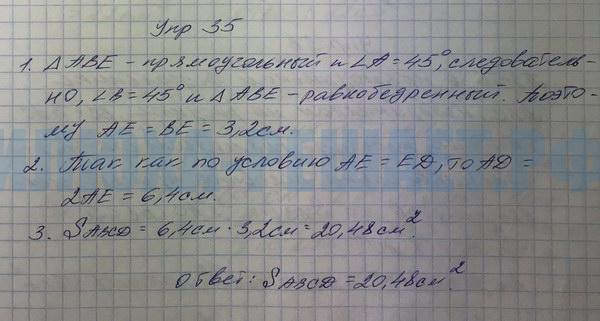 Упр 35
1. △ABE – прямоугольный и ∠A = 45°, следователь-
но, ∠B = 45° и △ABE – равнобедренный. Поэто-
му AE = BE = 3,2см.
2. Так как по условию AE = ED, то AD =
2AE = 6,4см.
3. SABCD = 6,4см · 3,2см = 20,48см².
Ответ: SABCD = 20,48см².